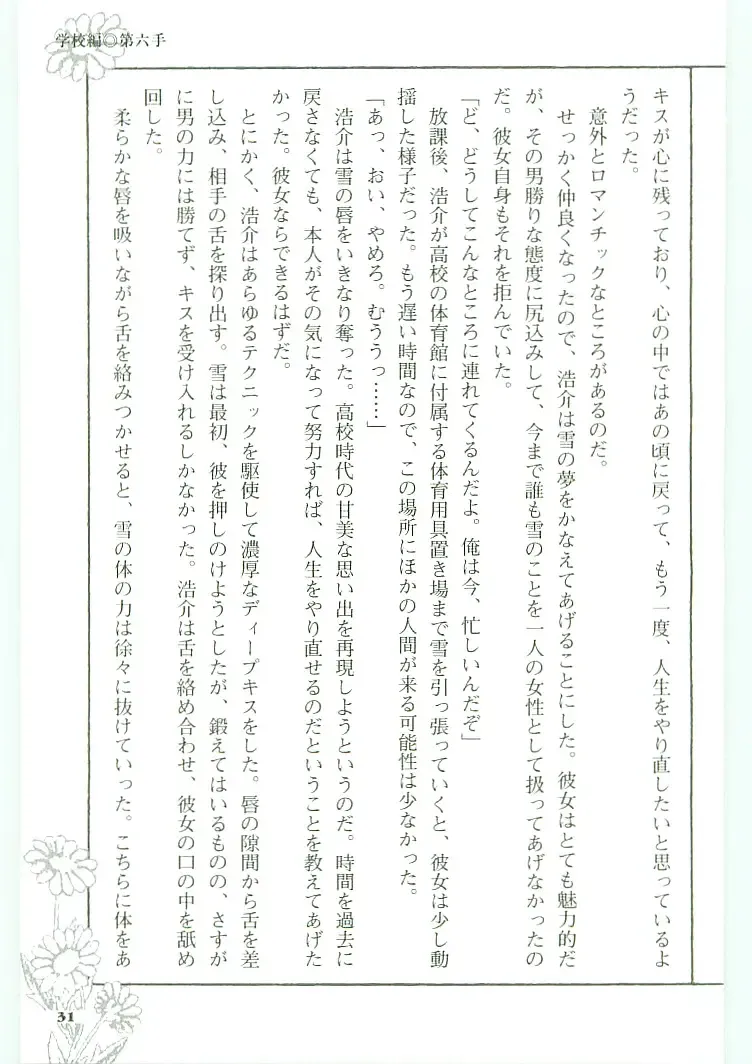 学校編◎第六手
キスが心に残っており、心の中ではあの頃に戻って、もう一度、人生をやり直したいと思っているよ
うだった。
意外とロマンチックなところがあるのだ。
せっかく仲良くなったので、浩介は雪の夢をかなえてあげることにした。彼女はとても魅力的だ
が、その男勝りな態度に尻込みして、今まで誰も雪のことを一人の女性として扱ってあげなかったの
だ。彼女自身もそれを拒んでいた。
「ど、どうしてこんなところに連れてくるんだよ。俺は今、忙しいんだぞ」
放課後、浩介が高校の体育館に付属する体育用具置き場まで雪を引っ張っていくと、彼女は少し動
揺した様子だった。もう遅い時間なので、この場所にほかの人間が来る可能性は少なかった。
「あっ、おい、やめろ。むううっ……」
浩介は雪の唇をいきなり奪った。高校時代の甘美な思い出を再現しようというのだ。時間を過去に
戻さなくても、本人がその気になって努力すれば、人生をやり直せるのだということを教えてあげた
かった。彼女ならできるはずだ。
とにかく、浩介はあらゆるテクニックを駆使して濃厚なディープキスをした。唇の隙間から舌を差
し込み、相手の舌を探り出す。雪は最初、彼を押しのけようとしたが、鍛えてはいるものの、さすが
に男の力には勝てず、キスを受け入れるしかなかった。浩介は舌を絡め合わせ、彼女の口の中を舐め
回した。
柔らかな唇を吸いながら舌を絡みつかせると、雪の体の力は徐々に抜けていった。こちらに体をあ
31